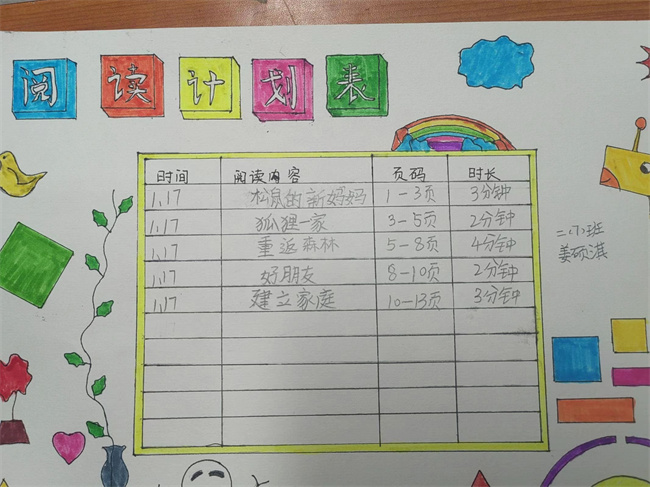 阅读计划表
时间 阅读内容 页码 时长
1,17 松鼠的新妈妈 1-3页 3分钟
1,17 狐狸一家 3-5页 2分钟
1,17 重返森林 5-8页 4分钟
1,17 好朋友 8-10页 2分钟
1,17 建立家庭 10-13页 3分钟
二小1班
姜硕淇